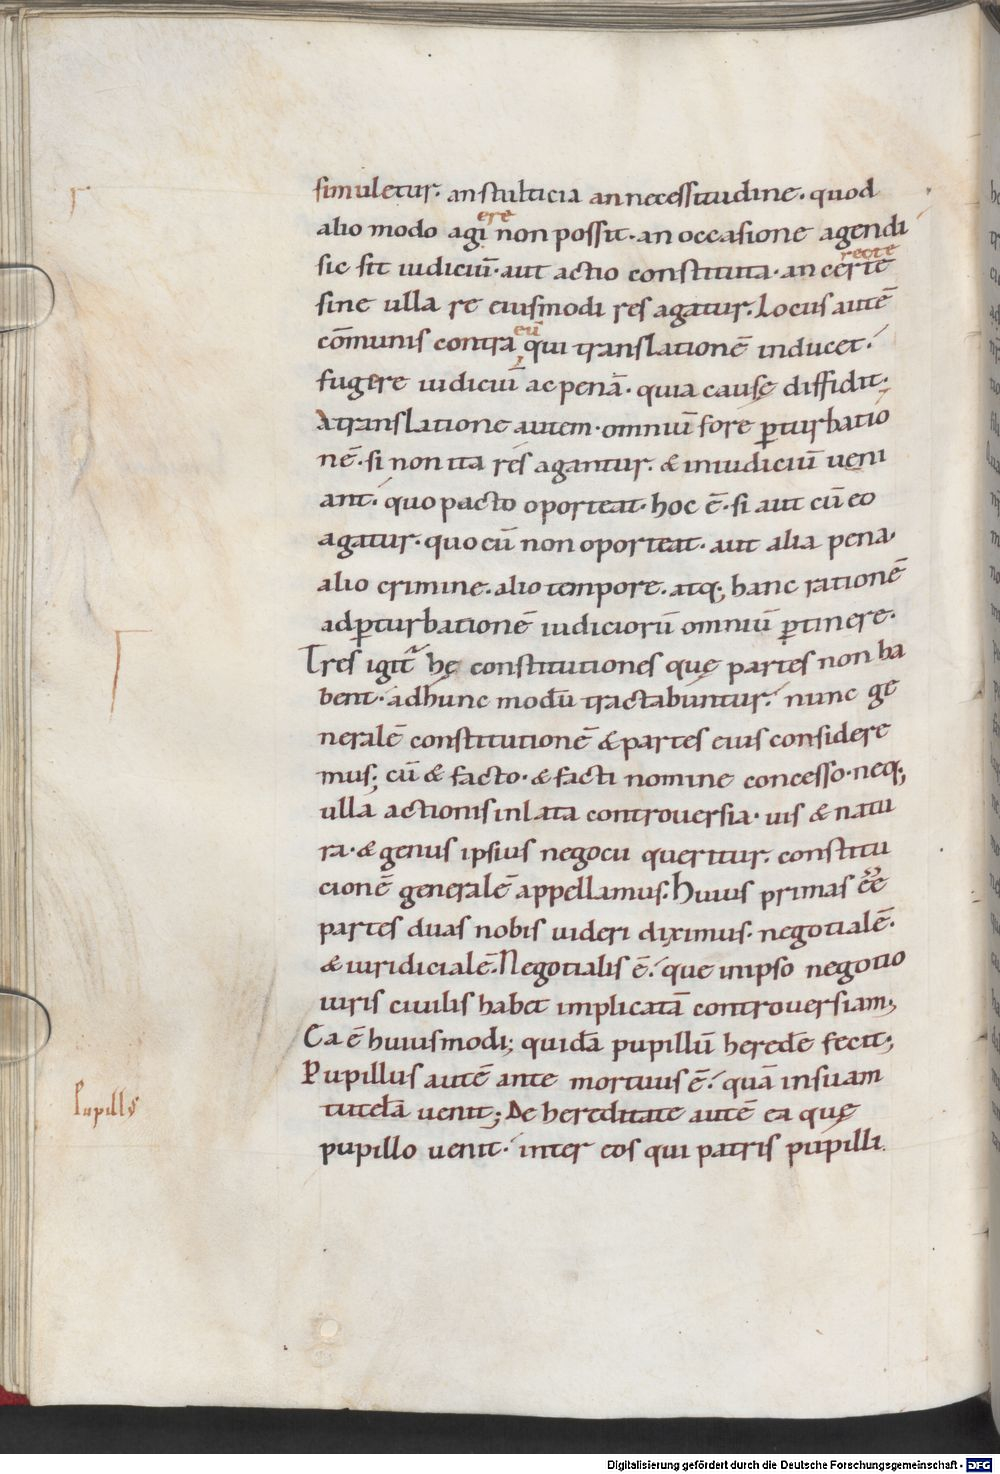 simuletur. an stulticia an necessitudine. quod
alio modo agi non possit. an occasione agendi
ere
sic sit iudiciū. aut actio constituta. an certē
recte
sine ulla re eiusmodi res agatur. Locus autē
cōmunis contra qui translationē inducet.
eū
fugere iudiciū ac penā. quia cause diffidit.
A translatione autem. omniū fore ꝑturbatio
nē. si non ita res agantur. & in iudiciū ueni
ant. quo pacto oporteat. hoc ē. si aut cū eo
agatur. quo cū non oporteat. aut alia pena.
alio crimine. alio tempore. atq; hanc rationē
ad ꝑturbationē iudiciorū omniū ꝑtinere.
Tres igit hę constitutiones quę partes non ha
bent. ad hunc modū tractabuntur. nunc ge
neralē constitutionē & partes eius considere
mus; cū & facto. & facti nomine concesso. neq;
ulla actionis inlata controuersia. uis & natu
ra. & genus ipsius negocii queritur. constitu
cionē generalē appellamus. Huius primas ēē
partes duas nobis uideri diximus. negotialē.
& iuridicialē. Negotialis ē. que in ipso negotio
iuris ciuilis habet implicatā controuersiam;
Ea ē huiusmodi; quidā pupillū heredē fecit;
Pupillus autē ante mortuus ē. quā in suam
Pupillꝰ
tutelā uenit; De hereditate autē ea quę
pupillo uenit. inter eos qui patris pupilli.
Digitalisierung gefördert durch die Deutsche Forschungsgemeinschaft - DFG